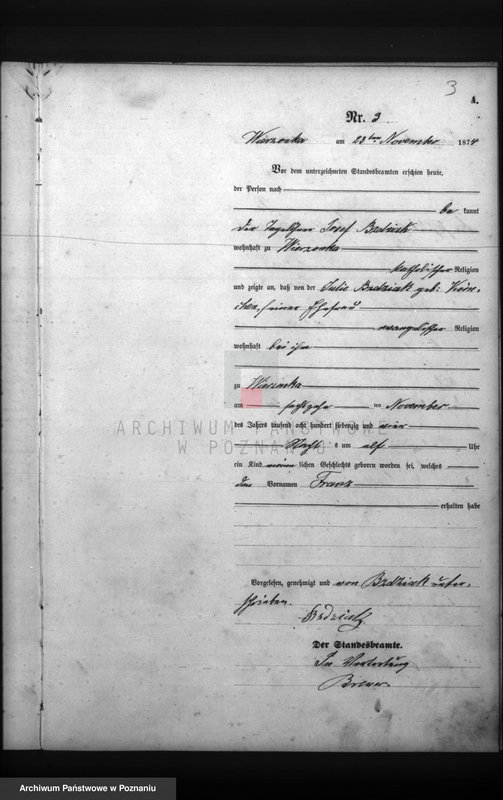 3
A.
Nr. 3
Wierzonka am 23ten November 1874
Vor dem unterzeichneten Standesbeamten erschien heute,
der Person nach
be kannt
der Tagelöhner Josef Bzdziak
wohnhaft zu Wierzonka
katholischer Religion
und zeigte an, daß von der Julie Bzdziak geb:
seiner Ehefrau
evangelischer Religion
wohnhaft bei ihm
zu Wierzonka
am sechszehn ten November
des Jahres tausend acht hundert siebenzig und vier
Nacht s um elf Uhr
ein Kind männ lichen Geschlechts geboren worden sei, welches
den Vornamen Franz
erhalten habe
Vorgelesen, genehmigt und von Bzdziak unter-
schrieben.
Bzdziak
Der Standesbeamte.
In Vertretung
ARCHIWUM PAŃSTWOWE
W POZNANIU
Archiwum Państwowe w Poznaniu